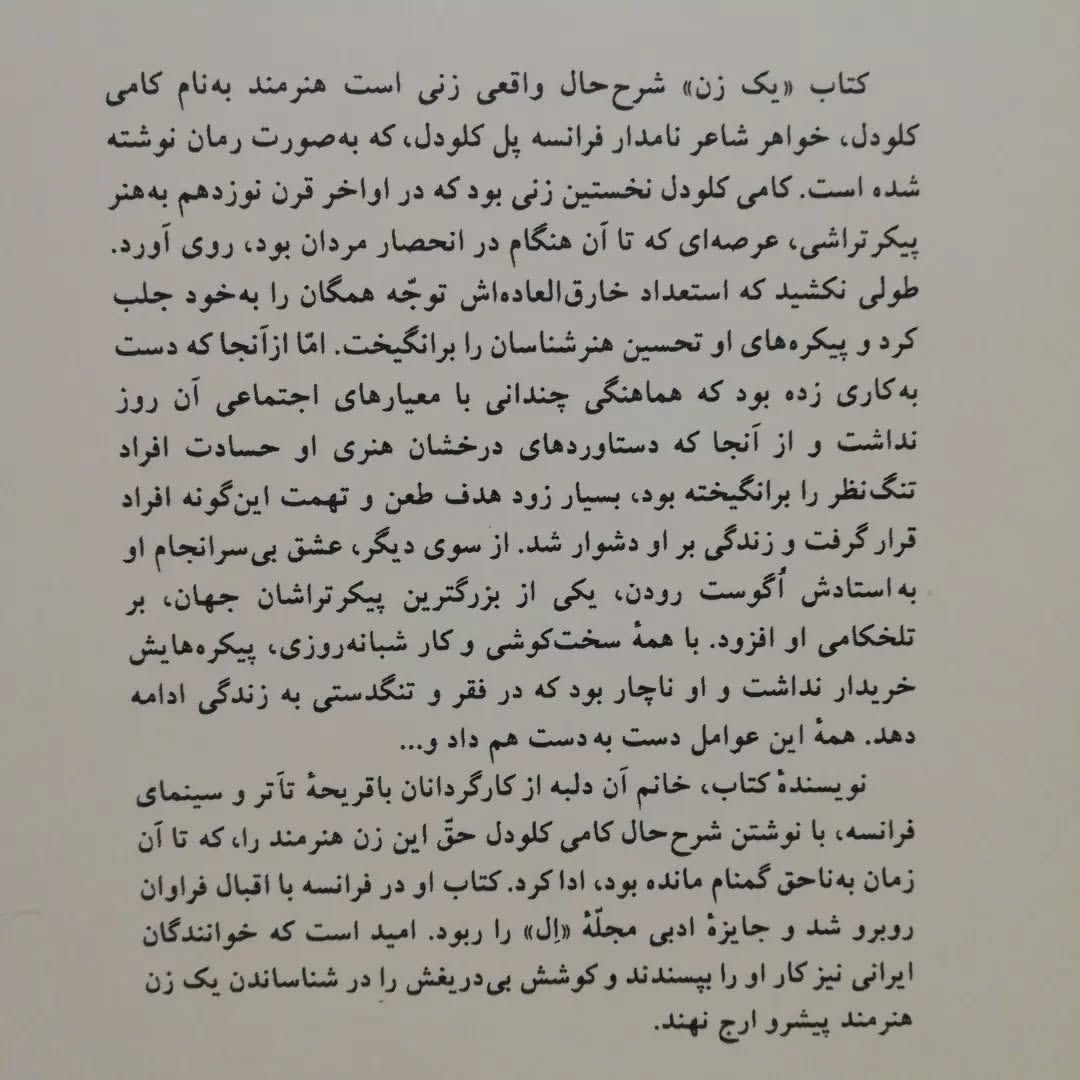 کتاب «یک زن» شرح‌حال واقعی زنی است هنرمند به‌نام کامی
کلودل، خواهر شاعر نامدار فرانسه پل کلودل، که به‌صورت رمان نوشته
شده است. کامی کلودل نخستین زنی بود که در اواخر قرن نوزدهم به‌هنر
پیکرتراشی، عرصه‌ای که تا آن هنگام در انحصار مردان بود، روی آورد.
طولی نکشید که استعداد خارق‌العاده‌اش توجّه همگان را به‌خود جلب
کرد و پیکره‌های او تحسین هنرشناسان را برانگیخت. امّا ازآنجا که دست
به‌کاری زده بود که هماهنگی چندانی با معیارهای اجتماعی آن روز
نداشت و از آنجا که دستاوردهای درخشان هنری او حسادت افراد
تنگ‌نظر را برانگیخته بود، بسیار زود هدف طعن و تهمت این‌گونه افراد
قرار گرفت و زندگی بر او دشوار شد. از سوی دیگر، عشق بی‌سرانجام او
به‌استادش اُگوست رودن، یکی از بزرگترین پیکرتراشان جهان، بر
تلخکامی او افزود. با همهٔ سخت‌کوشی و کار شبانه‌روزی، پیکره‌هایش
خریدار نداشت و او ناچار بود که در فقر و تنگدستی به زندگی ادامه
دهد. همهٔ این عوامل دست به‌دست هم داد و...
نویسندهٔ کتاب، خانم آن دلبه از کارگردانان باقریحهٔ تآتر و سینمای
فرانسه، با نوشتن شرح‌حال کامی کلودل حقّ این زن هنرمند را، که تا آن
زمان به‌ناحق گمنام مانده بود، ادا کرد. کتاب او در فرانسه با اقبال فراوان
روبرو شد و جایزهٔ ادبی مجلّهٔ «اِل» را ربود. امید است که خوانندگان
ایرانی نیز کار او را بپسندند و کوشش بی‌دریغش را در شناساندن یک زن
هنرمند پیشرو ارج نهند.